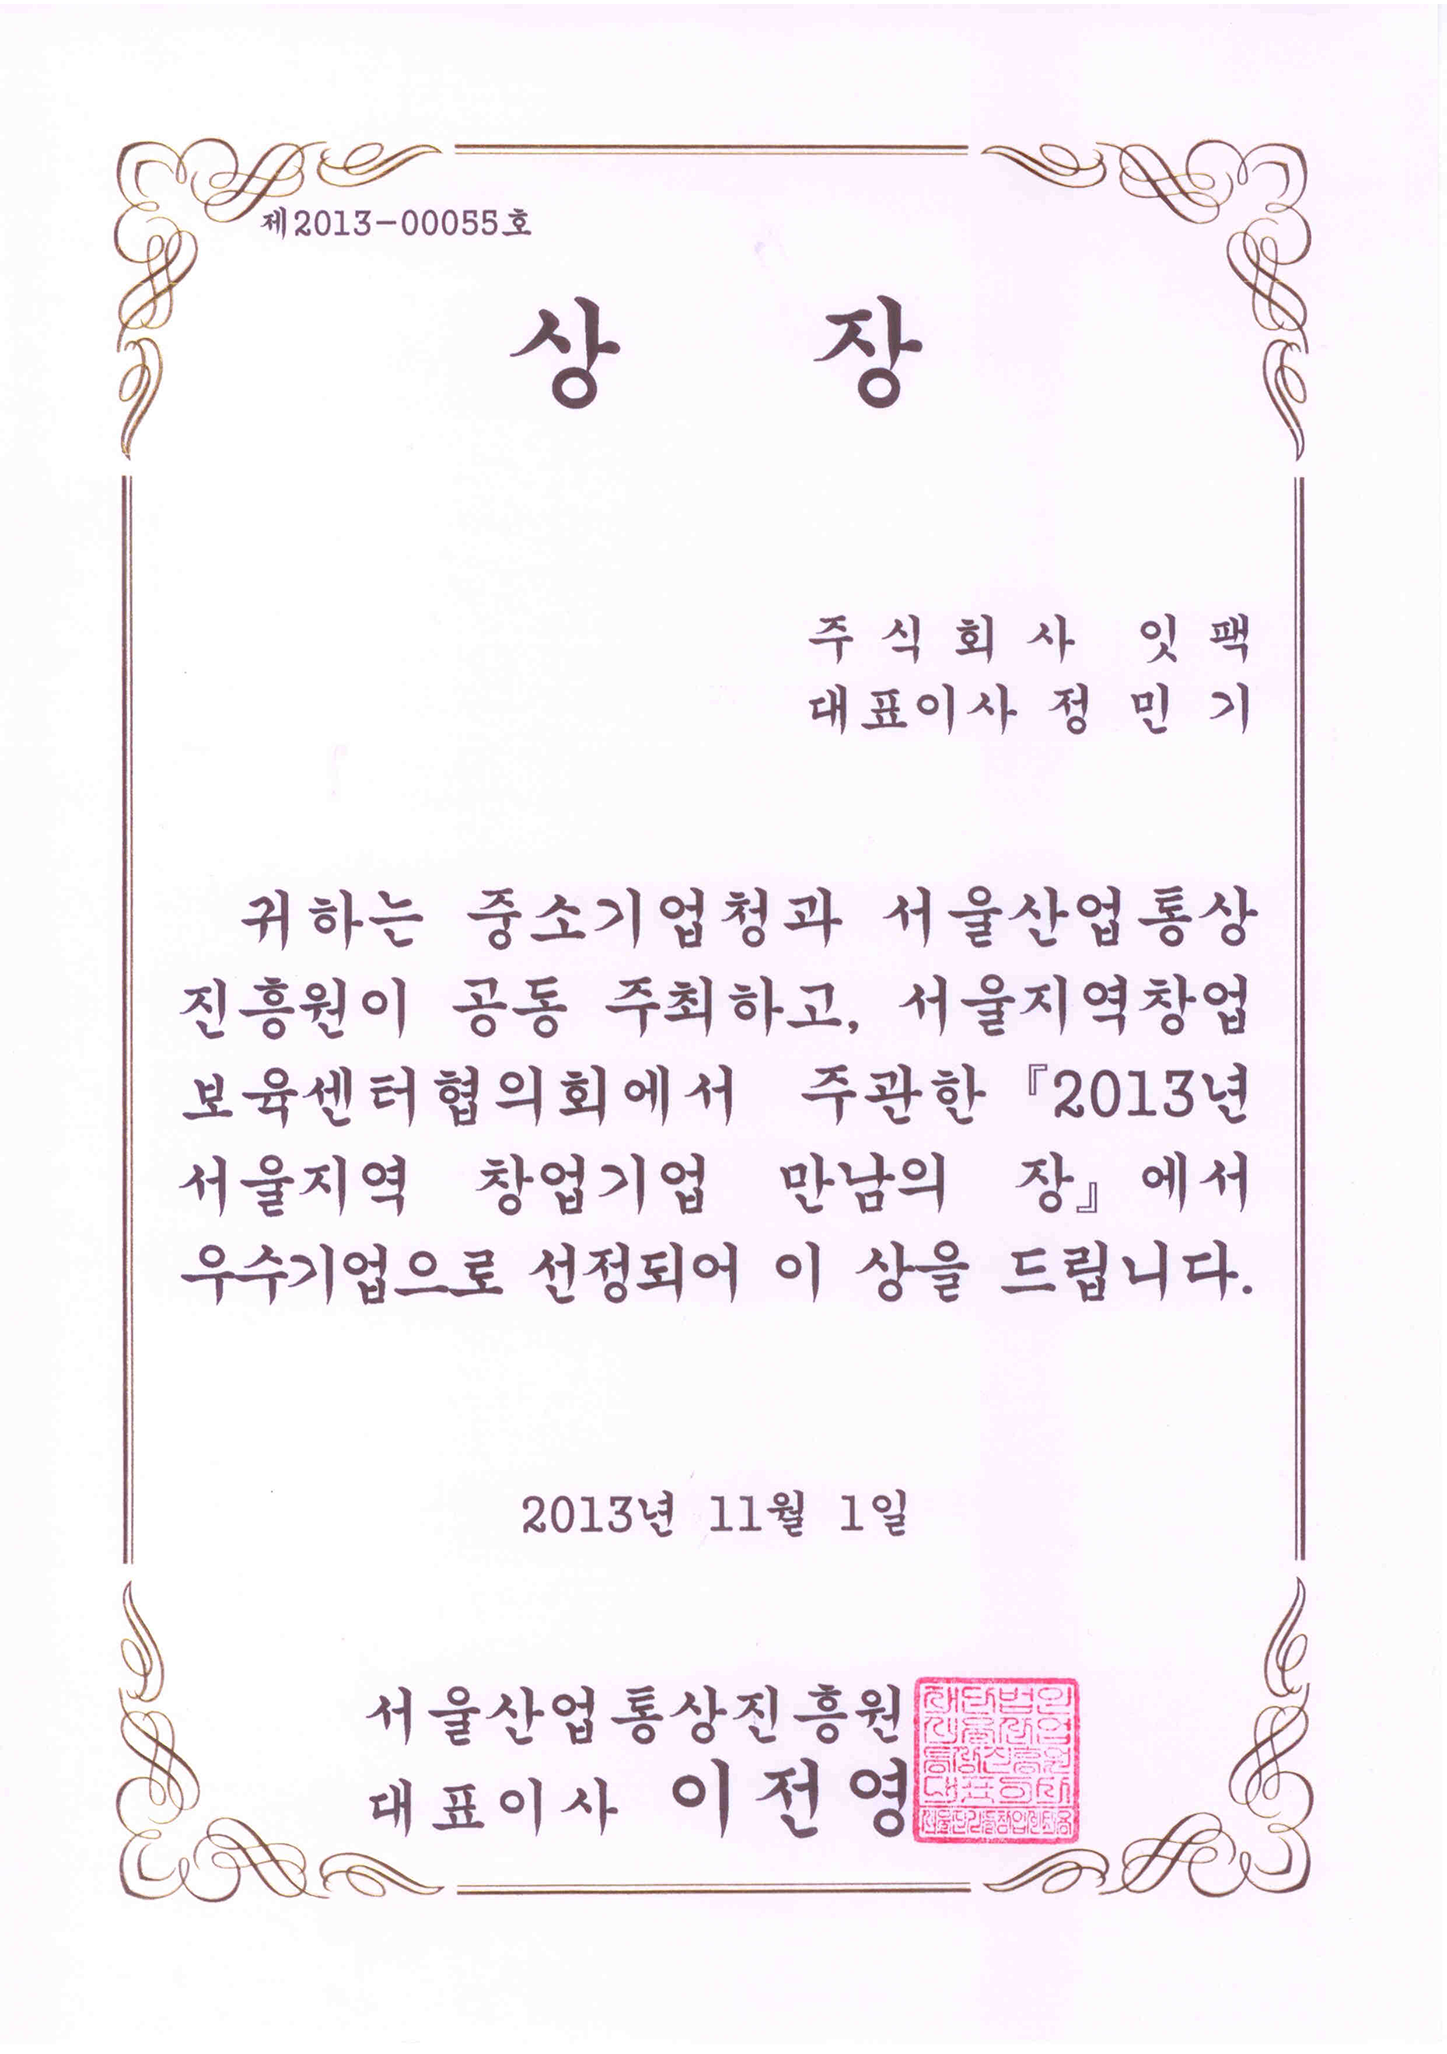 제2013-00055호
상 장
주 식 회 사 잇 팩
대표이사 정 민 기
귀하는 중소기업청과 서울산업통상
진흥원이 공동 주최하고, 서울지역창업
보육센터협의회에서 주관한 『2013년
서울지역 창업기업 만남의 장』에서
우수기업으로 선정되어 이 상을 드립니다.
2013년 11월 1일
서울산업통상진흥원
대표이사 이전영
재단법인
서울산업
통상진흥원
대표이사